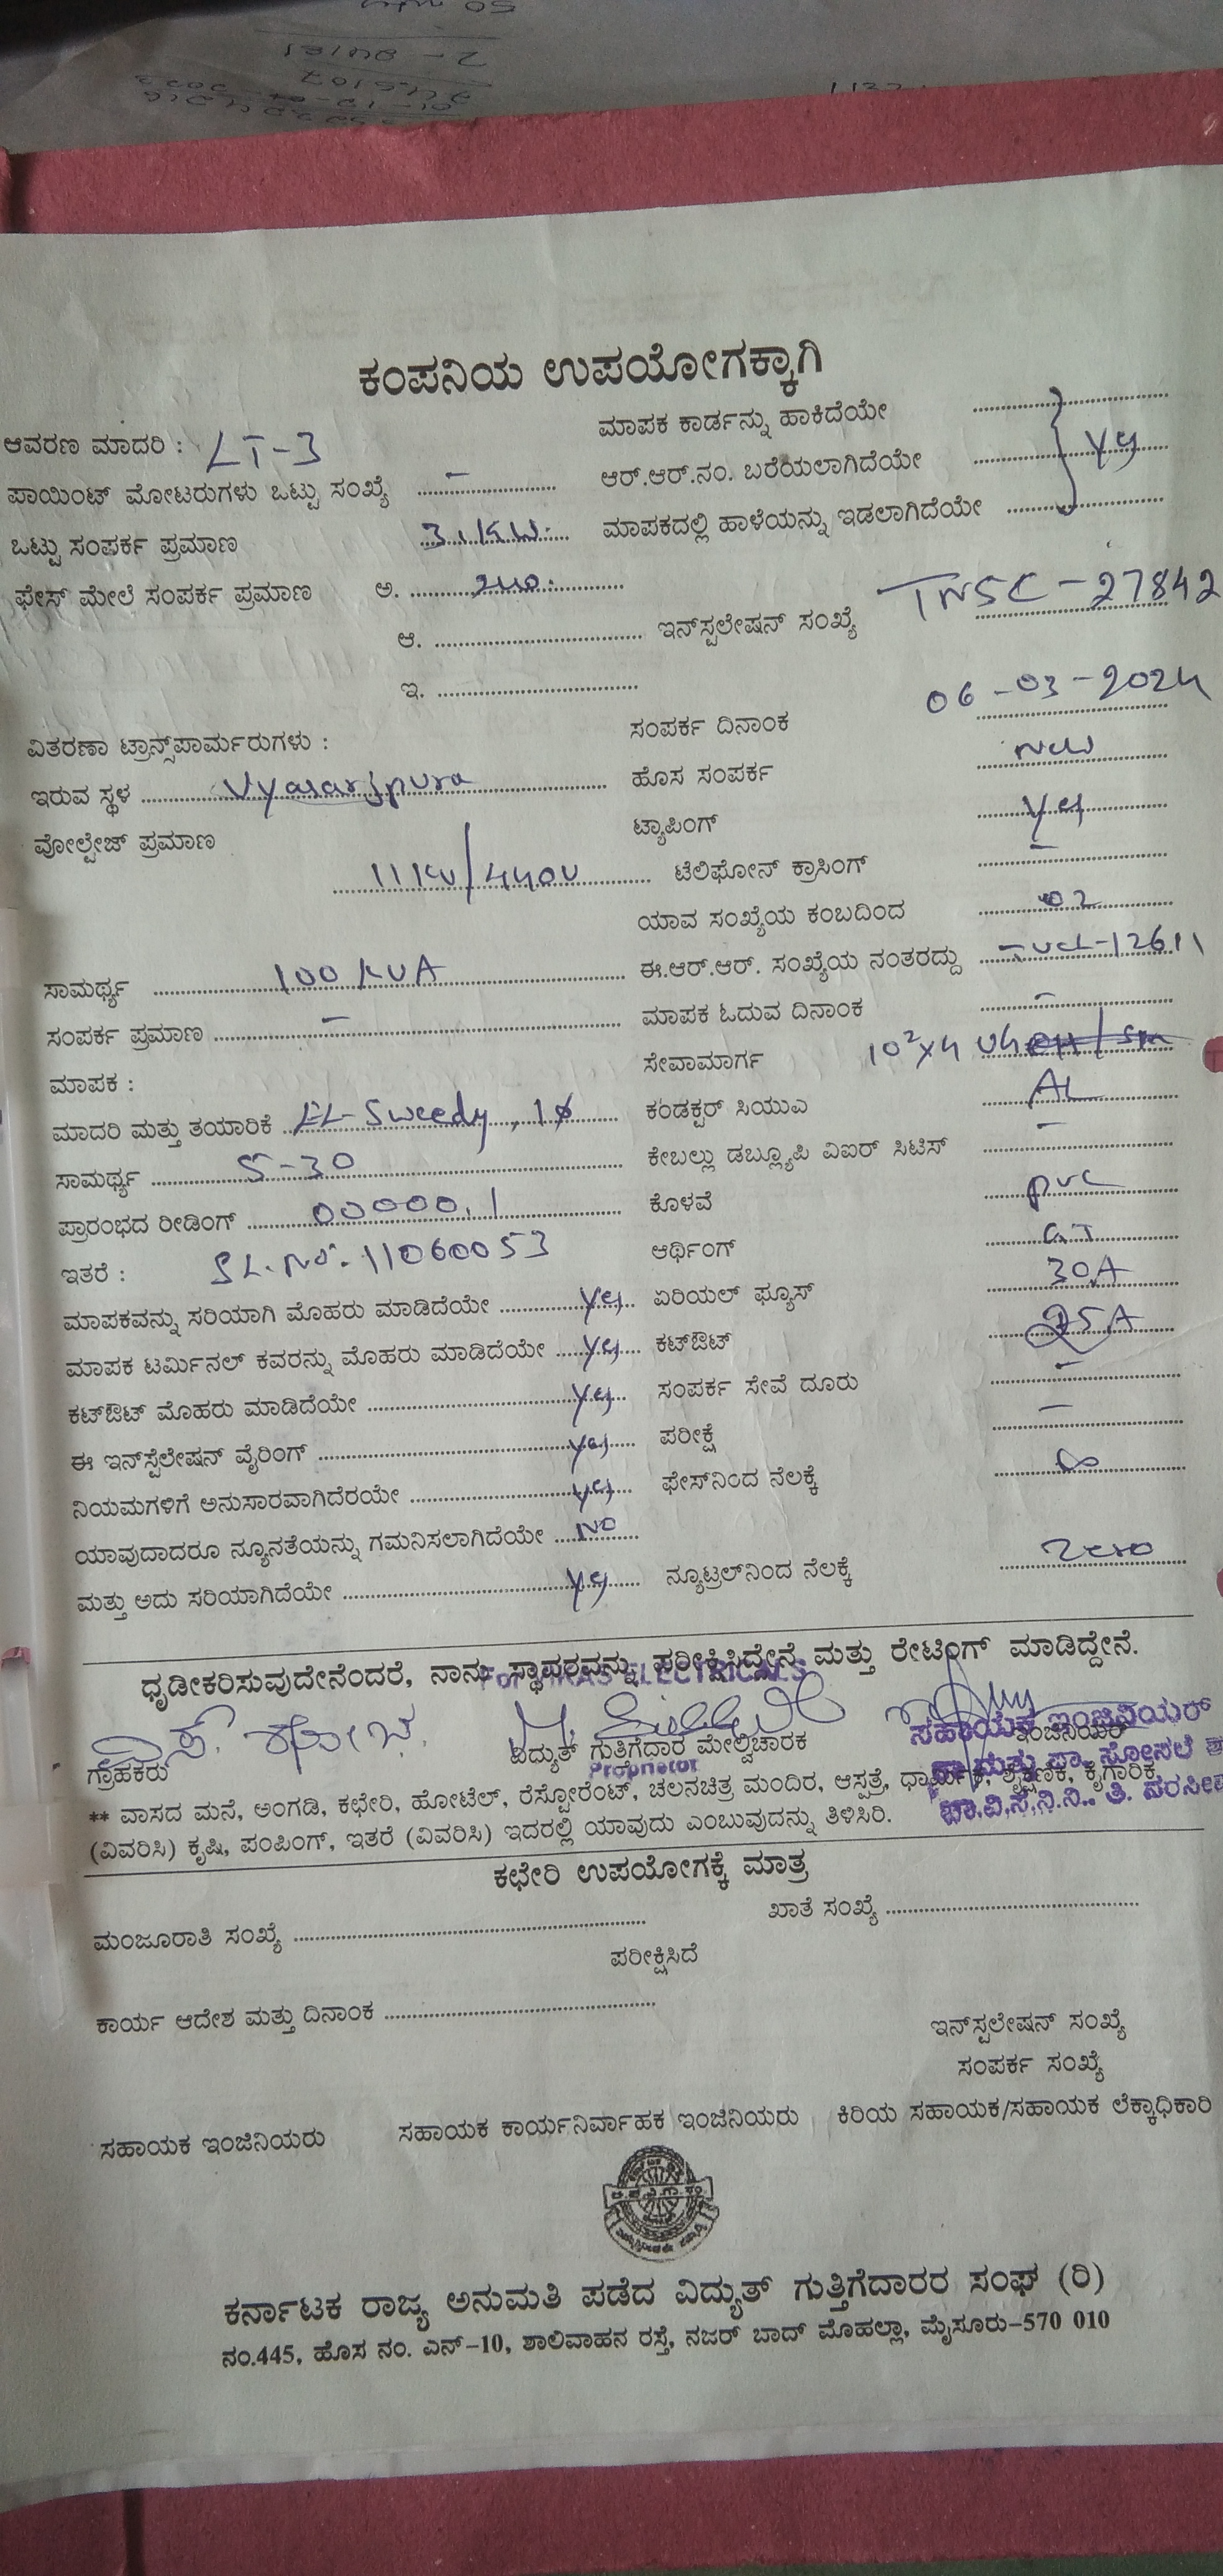 ಕಂಪನಿಯ ಉಪಯೋಗಕ್ಕಾಗಿ
ಆವರಣ ಮಾದರಿ : LT-3
ಮಾಪಕ ಕಾರ್ಡನ್ನು ಹಾಕಿದೆಯೇ
ಪಾಯಿಂಟ್ ಮೋಟರುಗಳು ಒಟ್ಟು ಸಂಖ್ಯೆ –
ಆರ್.ಆರ್.ನಂ. ಬರೆಯಲಾಗಿದೆಯೇ yes
ಒಟ್ಟು ಸಂಪರ್ಕ ಪ್ರಮಾಣ 3.KW.
ಮಾಪಕದಲ್ಲಿ ಹಾಳೆಯನ್ನು ಇಡಲಾಗಿದೆಯೇ
ಫೇಸ್ ಮೇಲೆ ಸಂಪರ್ಕ ಪ್ರಮಾಣ ಅ. 240.
ಆ.
ಇನ್‌ಸ್ಟಲೇಷನ್ ಸಂಖ್ಯೆ TNSC-27842
ಇ.
ಸಂಪರ್ಕ ದಿನಾಂಕ 06-03-2024
ವಿತರಣಾ ಟ್ರಾನ್ಸ್‌ಪಾರ್ಮರುಗಳು :
ಹೊಸ ಸಂಪರ್ಕ New
ಇರುವ ಸ್ಥಳ Vyasarajpura
ಟ್ಯಾಪಿಂಗ್ yes
ವೋಲ್ಟೇಜ್ ಪ್ರಮಾಣ 11KV/440V
ಟೆಲಿಫೋನ್ ಕ್ರಾಸಿಂಗ್ –
ಯಾವ ಸಂಖ್ಯೆಯ ಕಂಬದಿಂದ 02
ಸಾಮರ್ಥ್ಯ 100 KVA
ಈ.ಆರ್.ಆರ್. ಸಂಖ್ಯೆಯ ನಂತರದ್ದು
ಸಂಪರ್ಕ ಪ್ರಮಾಣ –
ಮಾಪಕ ಓದುವ ದಿನಾಂಕ –
ಮಾಪಕ :
ಸೇವಾಮಾರ್ಗ
ಮಾದರಿ ಮತ್ತು ತಯಾರಿಕೆ EL-Sweedy, 1ϕ
ಕಂಡಕ್ಟರ್ ಸಿಯುಎ AL
ಸಾಮರ್ಥ್ಯ 5-30
ಕೇಬಲ್ಲು ಡಬ್ಲ್ಯೂಪಿ ವಿಐರ್ ಸಿಟಿಸ್ –
ಪ್ರಾರಂಭದ ರೀಡಿಂಗ್ 00000.1
ಕೊಳವೆ pvc
ಇತರೆ : SL.No. 11060053
ಆರ್ಥಿಂಗ್ G.I
ಮಾಪಕವನ್ನು ಸರಿಯಾಗಿ ಮೊಹರು ಮಾಡಿದೆಯೇ yes
ಏರಿಯಲ್ ಫ್ಯೂಸ್ 30A
ಮಾಪಕ ಟರ್ಮಿನಲ್ ಕವರನ್ನು ಮೊಹರು ಮಾಡಿದೆಯೇ yes
ಕಟ್‌ಔಟ್ 25A
ಕಟ್‌ಔಟ್ ಮೊಹರು ಮಾಡಿದೆಯೇ yes
ಸಂಪರ್ಕ ಸೇವೆ ದೂರು –
ಈ ಇನ್‌ಸ್ಟೆಲೇಷನ್ ವೈರಿಂಗ್ yes
ಪರೀಕ್ಷೆ –
ನಿಯಮಗಳಿಗೆ ಅನುಸಾರವಾಗಿದೆರಯೇ yes
ಫೇಸ್‌ನಿಂದ ನೆಲಕ್ಕೆ ∞
ಯಾವುದಾದರೂ ನ್ಯೂನತೆಯನ್ನು ಗಮನಿಸಲಾಗಿದೆಯೇ NO
ಮತ್ತು ಅದು ಸರಿಯಾಗಿದೆಯೇ yes
ನ್ಯೂಟ್ರಲ್‌ನಿಂದ ನೆಲಕ್ಕೆ Zero
ಧೃಡೀಕರಿಸುವುದೇನೆಂದರೆ, ನಾನು ಸ್ಥಾವರವನ್ನು ಪರೀಕ್ಷಿಸಿದ್ದೇನೆ ಮತ್ತು ರೇಟಿಂಗ್ ಮಾಡಿದ್ದೇನೆ.
ELECTRICALS
ಸಹಾಯಕ ಇಂಜಿನಿಯರ್
ಗ್ರಾಹಕರು
ವಿದ್ಯುತ್ ಗುತ್ತಿಗೆದಾರ ಮೇಲ್ವಿಚಾರಕ
ಇಂಜಿನಿಯರ್
Proprietor
** ವಾಸದ ಮನೆ, ಅಂಗಡಿ, ಕಛೇರಿ, ಹೋಟೆಲ್, ರೆಸ್ಟೋರೆಂಟ್, ಚಲನಚಿತ್ರ ಮಂದಿರ, ಆಸ್ಪತ್ರೆ, ಧಾರ್ಮಿಕ, ಶೈಕ್ಷಣಿಕ, ಕೈಗಾರಿಕೆ,
(ವಿವರಿಸಿ) ಕೃಷಿ, ಪಂಪಿಂಗ್, ಇತರೆ (ವಿವರಿಸಿ) ಇದರಲ್ಲಿ ಯಾವುದು ಎಂಬುವುದನ್ನು ತಿಳಿಸಿರಿ.
ಕಛೇರಿ ಉಪಯೋಗಕ್ಕೆ ಮಾತ್ರ
ಮಂಜೂರಾತಿ ಸಂಖ್ಯೆ
ಖಾತೆ ಸಂಖ್ಯೆ
ಪರೀಕ್ಷಿಸಿದೆ
ಕಾರ್ಯ ಆದೇಶ ಮತ್ತು ದಿನಾಂಕ
ಇನ್‌ಸ್ಟಲೇಷನ್ ಸಂಖ್ಯೆ
ಸಂಪರ್ಕ ಸಂಖ್ಯೆ
ಸಹಾಯಕ ಇಂಜಿನಿಯರು
ಸಹಾಯಕ ಕಾರ್ಯನಿರ್ವಾಹಕ ಇಂಜಿನಿಯರು
ಕಿರಿಯ ಸಹಾಯಕ/ಸಹಾಯಕ ಲೆಕ್ಕಾಧಿಕಾರಿ
ಕರ್ನಾಟಕ ರಾಜ್ಯ ಅನುಮತಿ ಪಡೆದ ವಿದ್ಯುತ್ ಗುತ್ತಿಗೆದಾರರ ಸಂಘ (ರಿ)
ನಂ.445, ಹೊಸ ನಂ. ಎನ್-10, ಶಾಲಿವಾಹನ ರಸ್ತೆ, ನಜರ್ ಬಾದ್ ಮೊಹಲ್ಲಾ, ಮೈಸೂರು-570 010